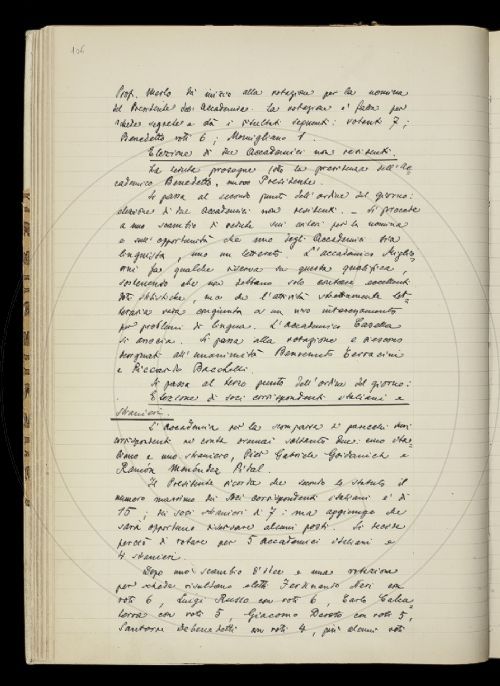 106
Prof. Merlo dà inizio alla votazione per la nomina
del Presidente dell'Accademia. La votazione è fatta per
schede segrete e dà i risultati seguenti: votanti 7;
Benedetto voti 6; Momigliano 1.
Elezione di due Accademici non residenti.
La seduta prosegue sotto la presidenza dell'Ac=
cademico Benedetto, nuovo Presidente.
Si passa al secondo punto dell'ordine del giorno:
elezione di due Accademici non residenti. – Si procede
a uno scambio di vedute sui criteri per la nomina
e sull'opportunità che uno degli Accademici sia
linguista, uno un letterato. L'accademico Miglio=
rini fa qualche riserva su questa qualifica,
sostenendo che non debbano solo contare eccellenti
doti stilistiche, ma che l'attività strettamente let=
teraria vada congiunta a un vivo interessamento
per problemi di lingua. L'Accademico Casella
si associa. Si passa alla votazione e riescono
designati all'unanimità Benvenuto Terracini
e Riccardo Bacchelli.
Si passa al terzo punto dell'ordine del giorno:
Elezione di soci corrispondenti italiani e
stranieri.
L'Accademia per la scomparsa di parecchi soci
corrispondenti ne conta oramai soltanto due: uno ita=
liano e uno straniero, Pier Gabriele Goidanich e
Ramón Menéndez Pidal.
Il Presidente ricorda che secondo lo statuto il
numero massimo dei Soci corrispondenti italiani è di
15; dei soci stranieri di 7: ma aggiunge che
sarà opportuno riservare alcuni posti. Si decide
perciò di votare per 5 accademici italiani e
4 stranieri.
Dopo uno scambio d'idee e una votazione
per schede risultano eletti Ferdinando Neri con
voti 6, Luigi Russo con voti 6, Carlo Calca=
terra con voti 5, Giacomo Devoto con voti 5,
Santorre Debenedetti con voti 4, più alcuni voti